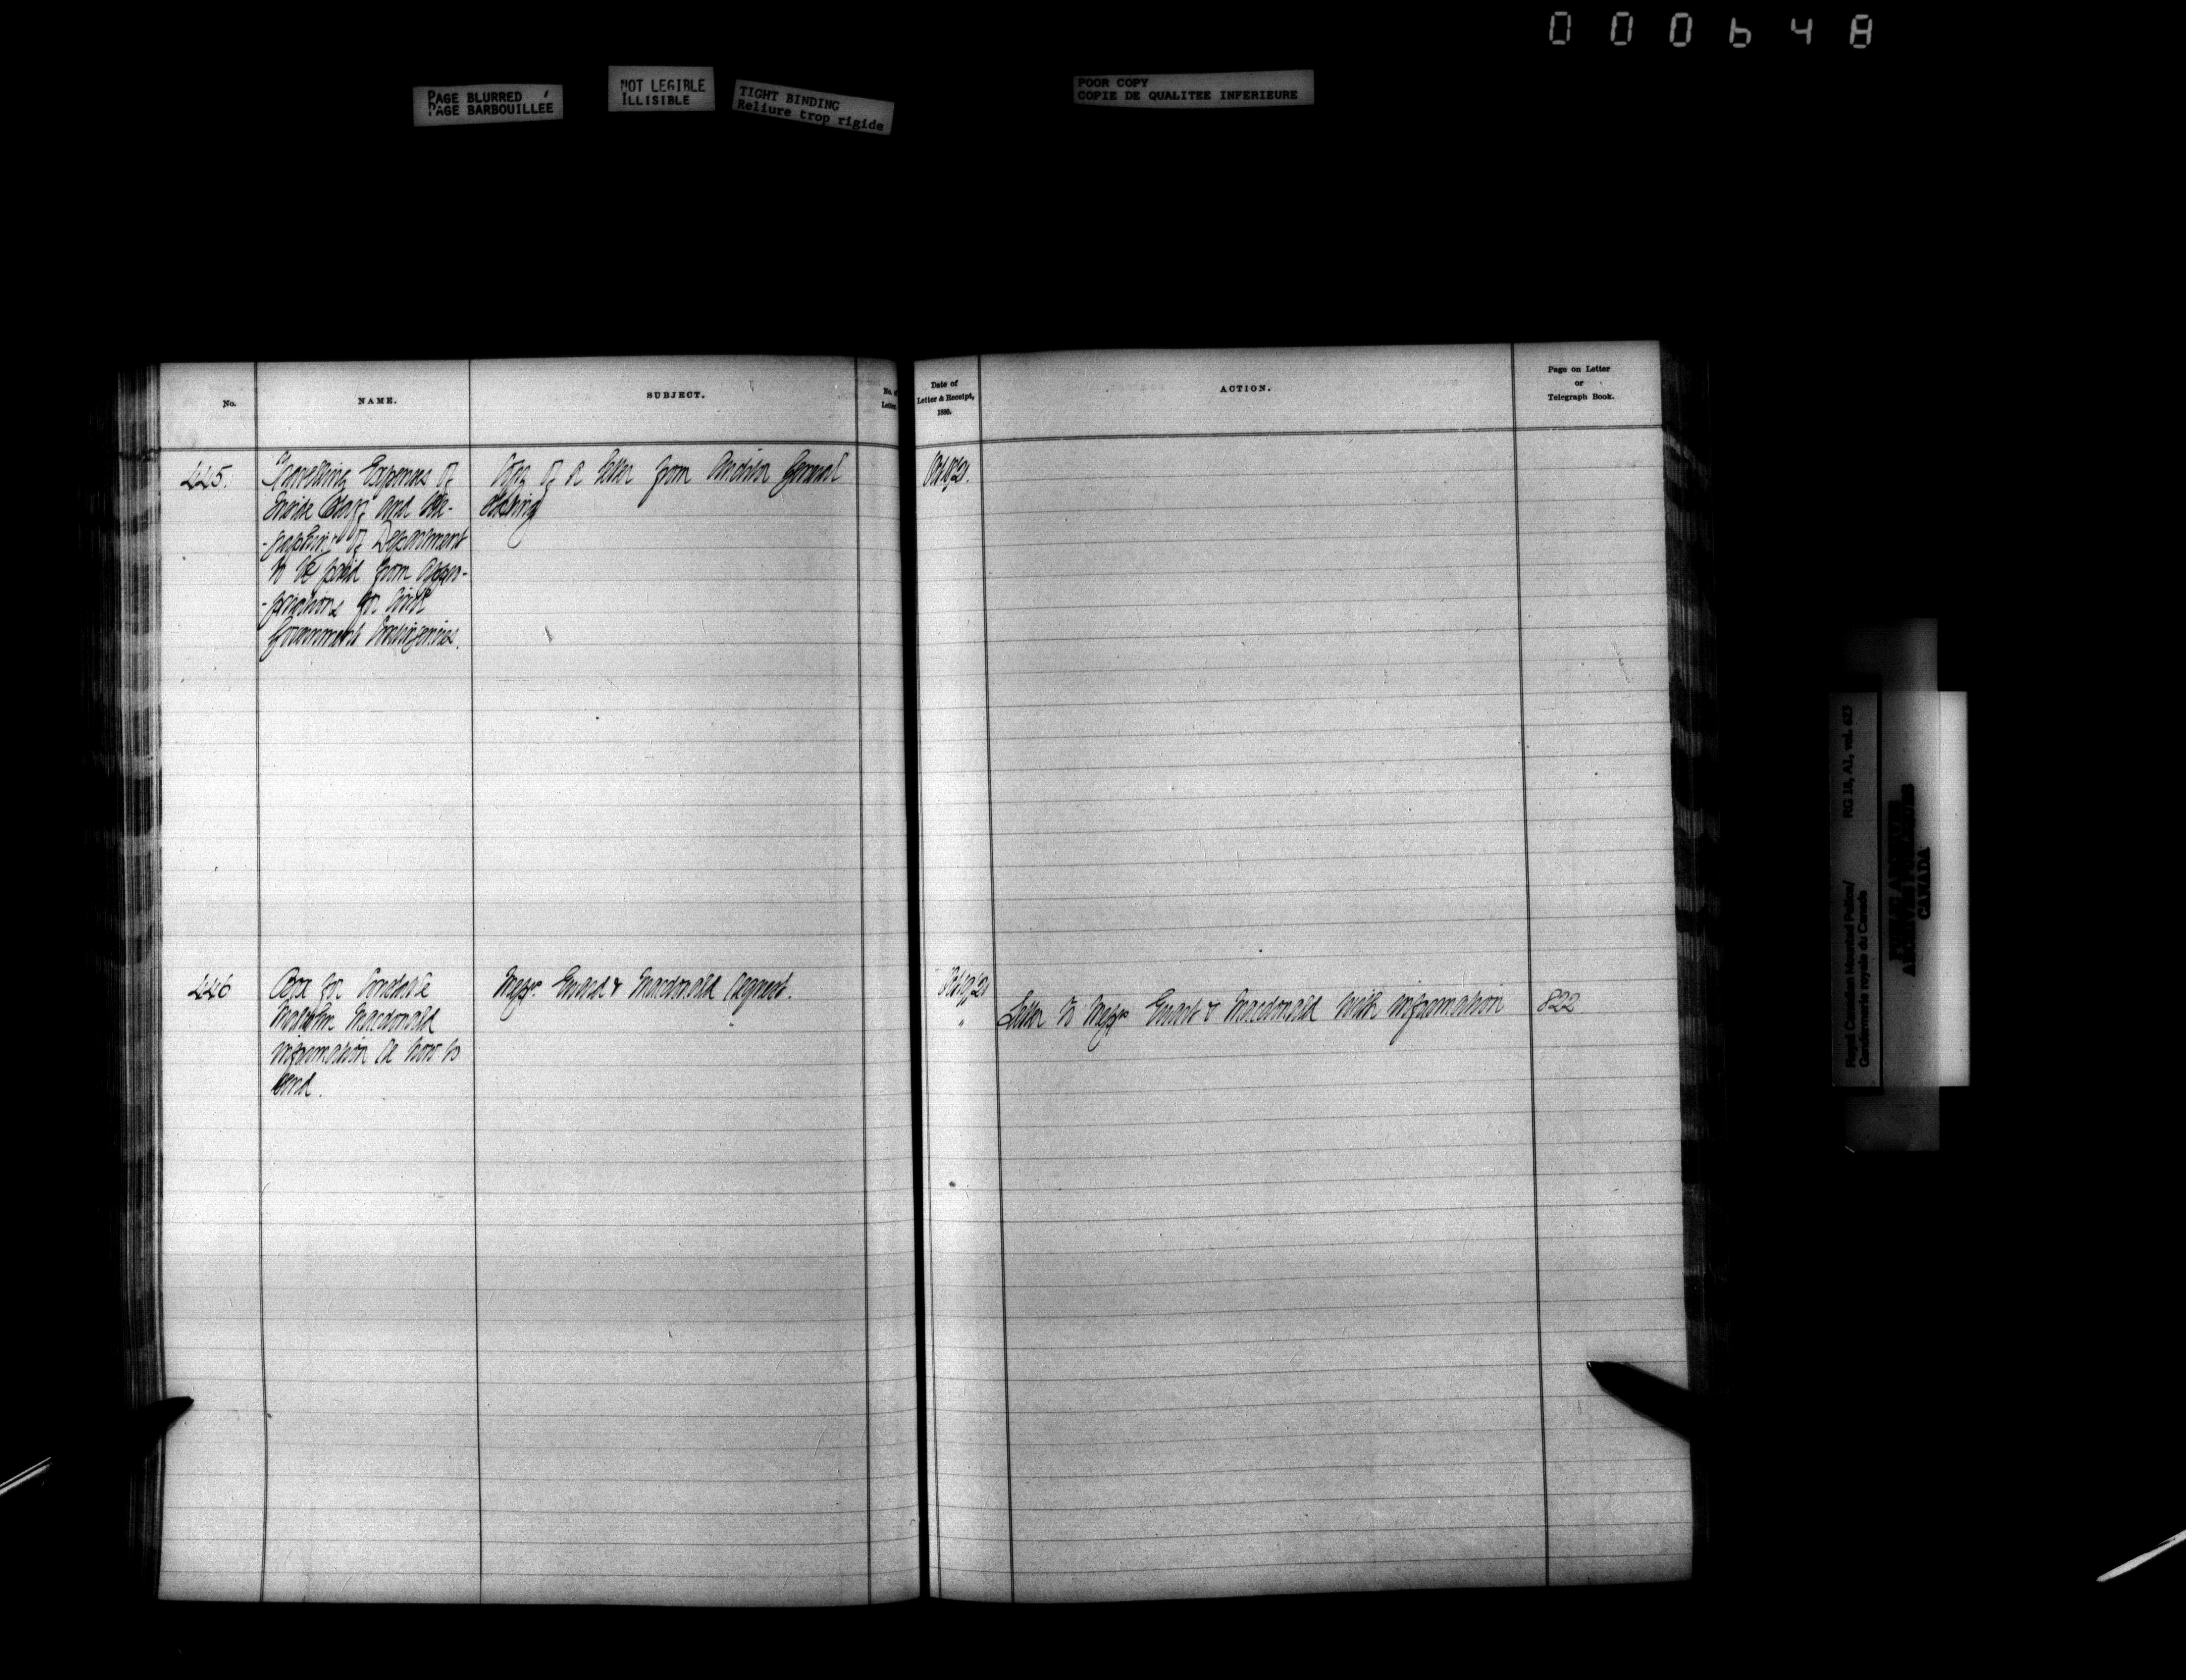 000648
PAGE BLURRED
PAGE BARBOUILLEE
NOT LEGIBLE
ILLISIBLE
TIGHT BINDING
Reliure trop rigide
POOR COPY
COPIE DE QUALITEE INFERIEURE
No.
NAME.
SUBJECT.
No. of
Letter
Date of
Letter & Receipt,
1880.
ACTION.
Page on Letter
or
Telegraph Book.
445.
Travelling Expenses of
Inside Staff and
of Department
to be paid from appro-
-priations for Civil
Government Contingencies.
Copy of a letter from Auditor General
Oct 19/21.
446
Box for Constable
Malcolm Macdonald
information as how to
send.
Messrs. Ewart & Macdonald request.
Oct 19/21
"
Letter to Messrs Ewart & Macdonald with information
822
Royal Canadian Mounted Police/
Gendarmerie royale du Canada
RG 18, A1, vol. 623
PUBLIC ARCHIVES
ARCHIVES PUBLIQUES
CANADA